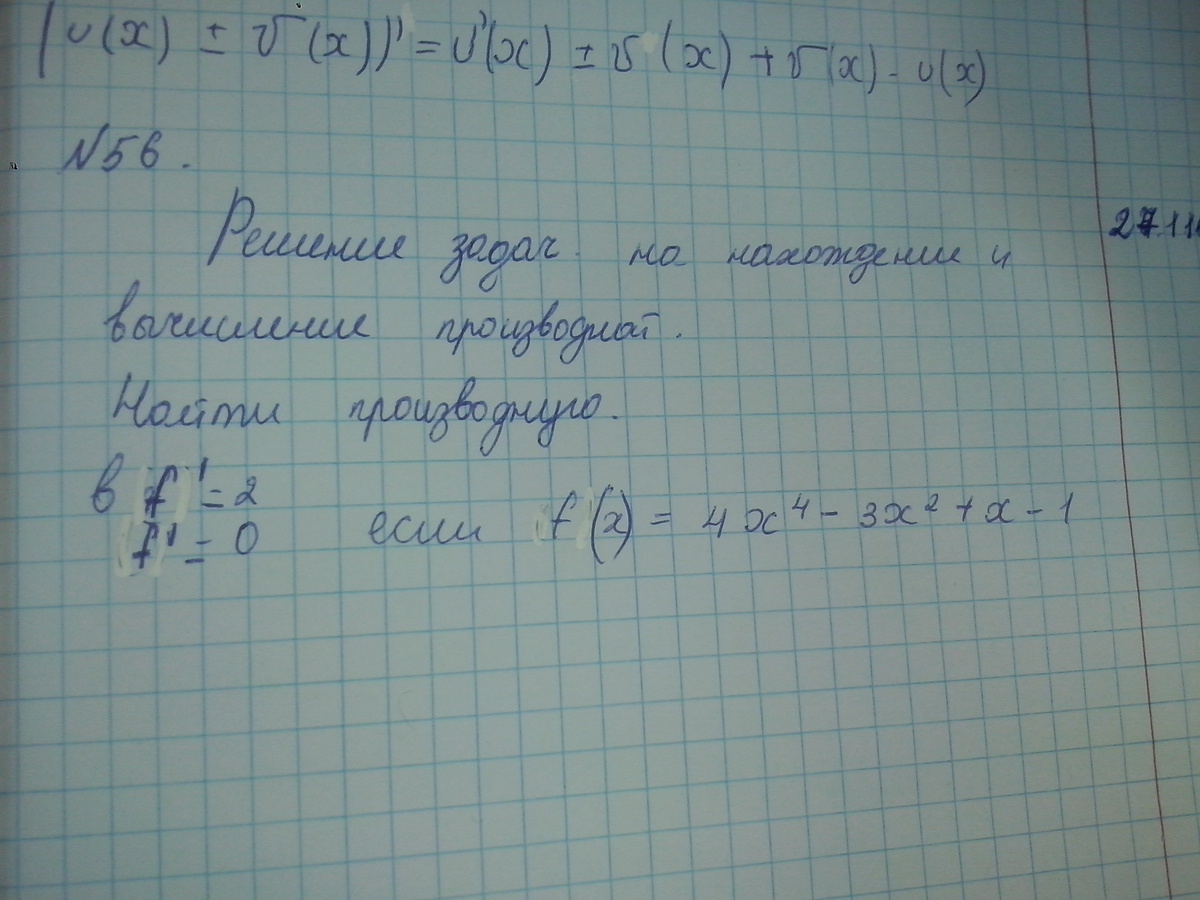 (u(x) ± v(x))' = u'(x) ± v (x) + v(x) - u(x)
N56.
27.11
Решение задач на нахождение и
вычисление производной.
Найти производную.
в f' = 2
f' = 0 если f (x) = 4x⁴ - 3x² + x - 1